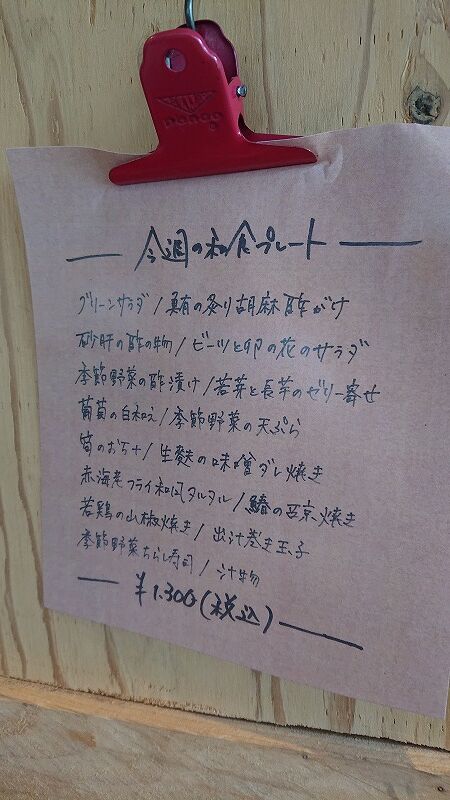 penco
今週の和食プレート
グリーンサラダ/真鯛の炙り胡麻酢がけ
砂肝の酢の物/ビーツと卯の花のサラダ
季節野菜の酢漬け/若芽と長芋のゼリー寄せ
葡萄の白和え/季節野菜の天ぷら
筍のおちキ/生麩の味噌ダレ焼き
赤海老フライ和風タルタル/鰆の西京焼き
若鶏の山椒焼き/出汁巻き玉子
季節野菜ちらし寿司/汁物
¥1.300(税込)